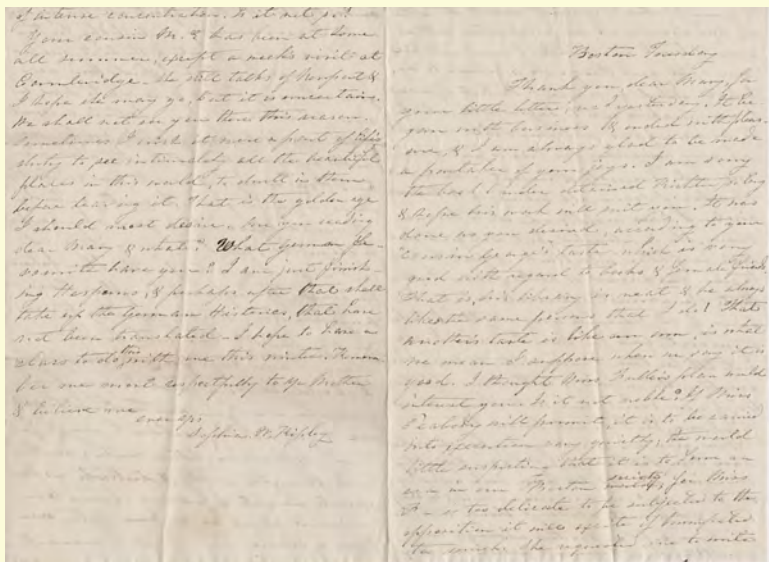 of intense concentration. Is it not so?
Your cousin M. E has been at home
all summer, except a week's visit at
Cambridge. She still talks of Newport &
I hope she may go, but it is uncertain.
We shall not see you there this season.
Sometimes I wish it were a part of
to see intimately all the beautiful
places in this world, to dwell in them
before leaving it. That is the golden age
I should most desire. Are you reading
dear Mary & what? What German
have you? I am just finish-
ing Hesperus, & perhaps after that shall
take up the German Histories, that have
not been translated - I hope to have a
class to do this with me this winter. Remem
ber me most respectfully to yr Mother
& believe me
ever yrs
Sophia W. Ripley
Boston Tuesday
Thank you, dear Mary, for
your little letter, recd yesterday. It be
gan with business & ended with pleas-
ure, & I am always glad to be made
a partaker of your joys. I am sorry
the book binder detained Richter so long
& hope his work will suit you. It was
done as you desired, according to your
Cousin George's taste which is very
good with regard to books & female friends
That is, his library is neat & he always
likes the same persons that I do! That
another's taste is like our own, is what
we mean I suppose when we say it is
good. I thought Miss Fuller's plan would
interest you. Is it not noble? If Miss
Peabody will permit, it is to be carried
into execution very quietly, the world
little suspecting that it is to form an
era in our Boston society, for Miss
F— is too delicate to be subjected to the
opposition it will excite if trumpeted
She requested me to write